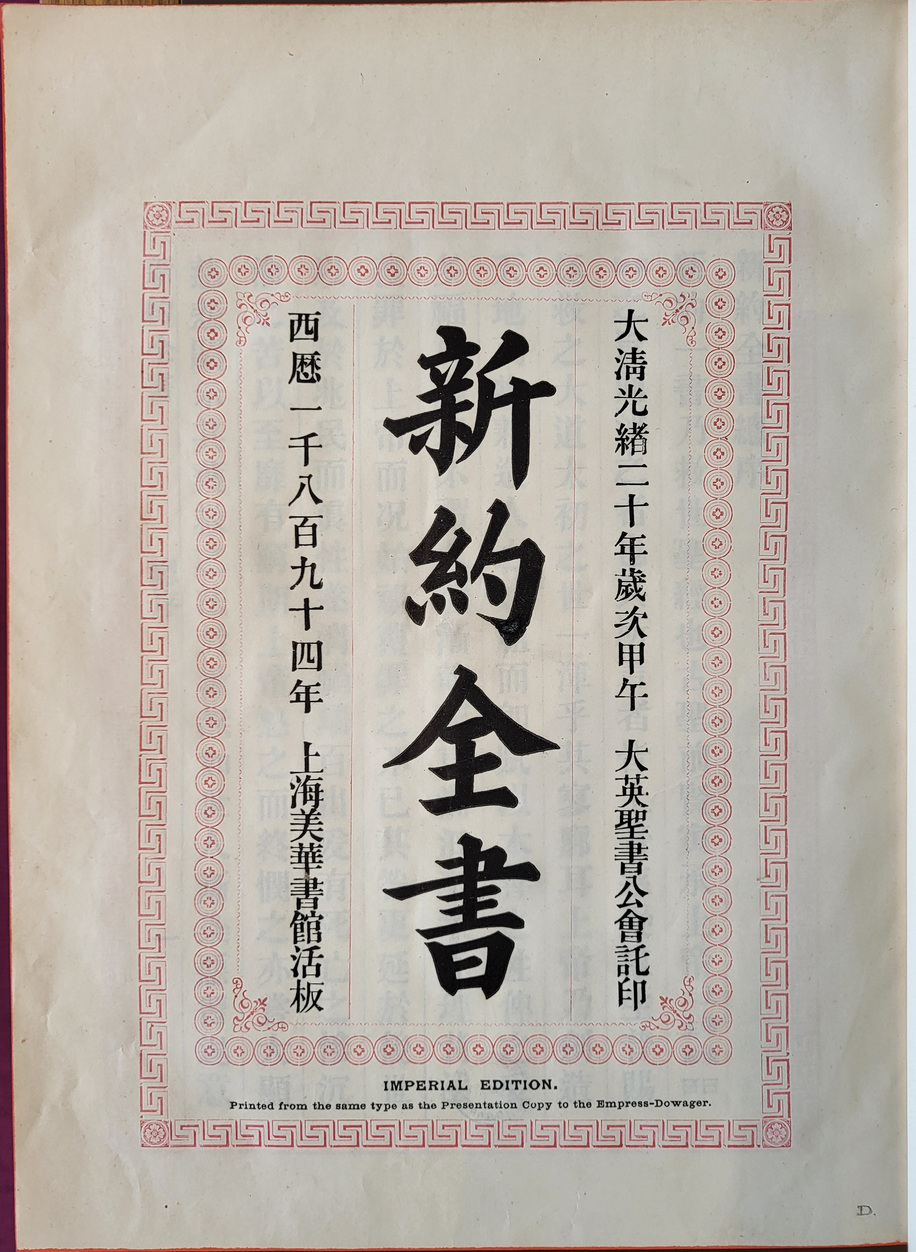 大清光緒二十年歲次甲午 大英聖書公會託印
新約全書
西曆一千八百九十四年 上海美華書館活板
IMPERIAL EDITION.
Printed from the same type as the Presentation Copy to the Empress-Dowager.
D.